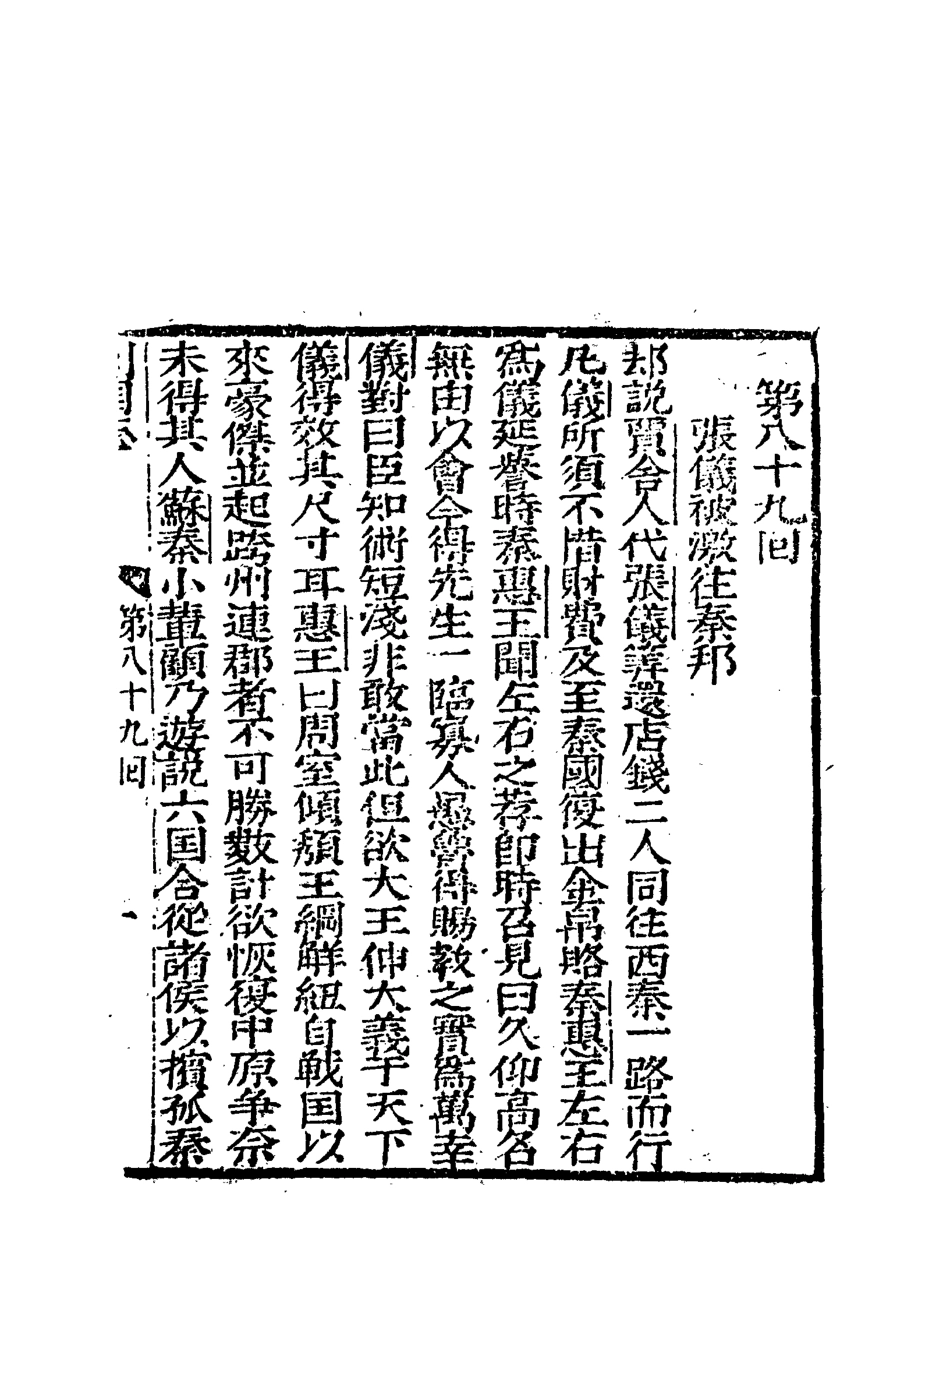 第八十九囘
張儀被激往秦邦
却説賈舍人代張儀筭還店錢二人同往西秦一路而行
凡儀所須不惜財費及至秦國復出金帛賂秦惠王左右
爲儀延譽時秦惠王聞左右之荐卽時召見曰久仰高名
無由以會今得先生一臨寡人愚魯得賜教之實爲萬幸
儀對曰臣知術短淺非敢當此但欲大王伸大義于天下
儀得效其尺寸耳惠王曰周室傾頹王綱解紐自戰国以
來豪傑並起跨州連郡者不可勝數計欲恢復中原争奈
未得其人蘇秦小輩顧乃遊説六国合從諸侯以擯孤秦
列國志 第八十九囘 一